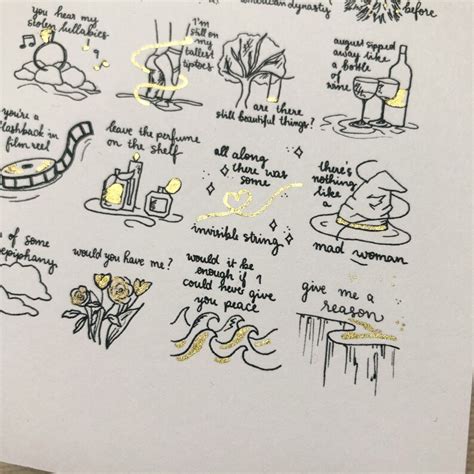 american dynasty
before
you hear my
stolen lullabies
i'm
still on
my
tallest
tiptoes
are there
still beautiful things?
august sipped
away like
a bottle
of wine
you're a
flashback in
film reel
leave the perfume
on the shelf
all along
there was
some
invisible string
there's
nothing
like
a
mad woman
of some
epiphany
would you have me?
would it be
enough if i
could never give
you peace
give me a
reason